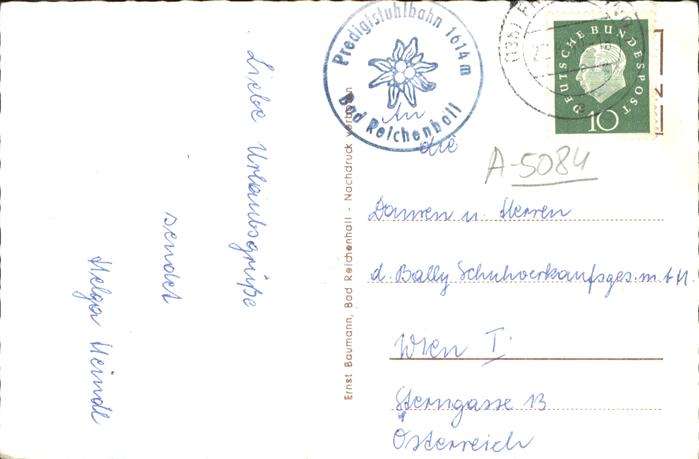 Liebe Urlaubsgrüße
sendet
Helga Heindl
Ernst Baumann, Bad Reichenhall - Nachdruck verboten
Predigtstuhlbahn 1614 m
Bad Reichenhall
DEUTSCHE BUNDESPOST
10
A-5084
An
die
Damen u. Herren
d. Bally Schuhverkaufsges.m.b.H.
Wien I.
Sterngasse 13
Österreich